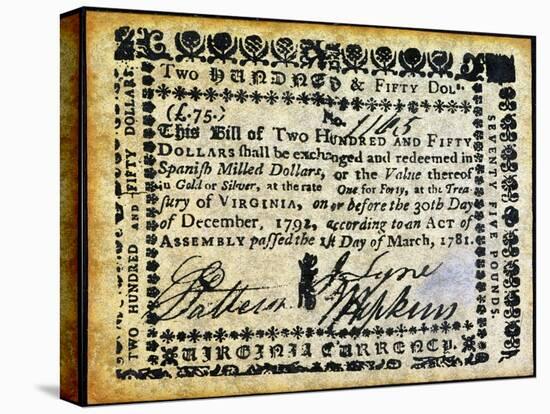 Two HUNDRED & FIFTY DOL^s.
(£.75.) No. 1165
This Bill of Two HUNDRED AND FIFTY
DOLLARS ſhall be exchanged and redeemed in
Spaniſh Milled Dollars, or the Value thereof
in Gold or Silver, at the rate One for Forty, at the Trea-
ſury of VIRGINIA, on or before the 30th Day
of December, 1792, according to an ACT of
ASSEMBLY paſſed the 1ſt Day of March, 1781.
J Lyne
Hopkins
VIRGINIA CURRENCY.
TWO HUNDRED AND FIFTY DOLLARS.
SEVENTY FIVE POUNDS.